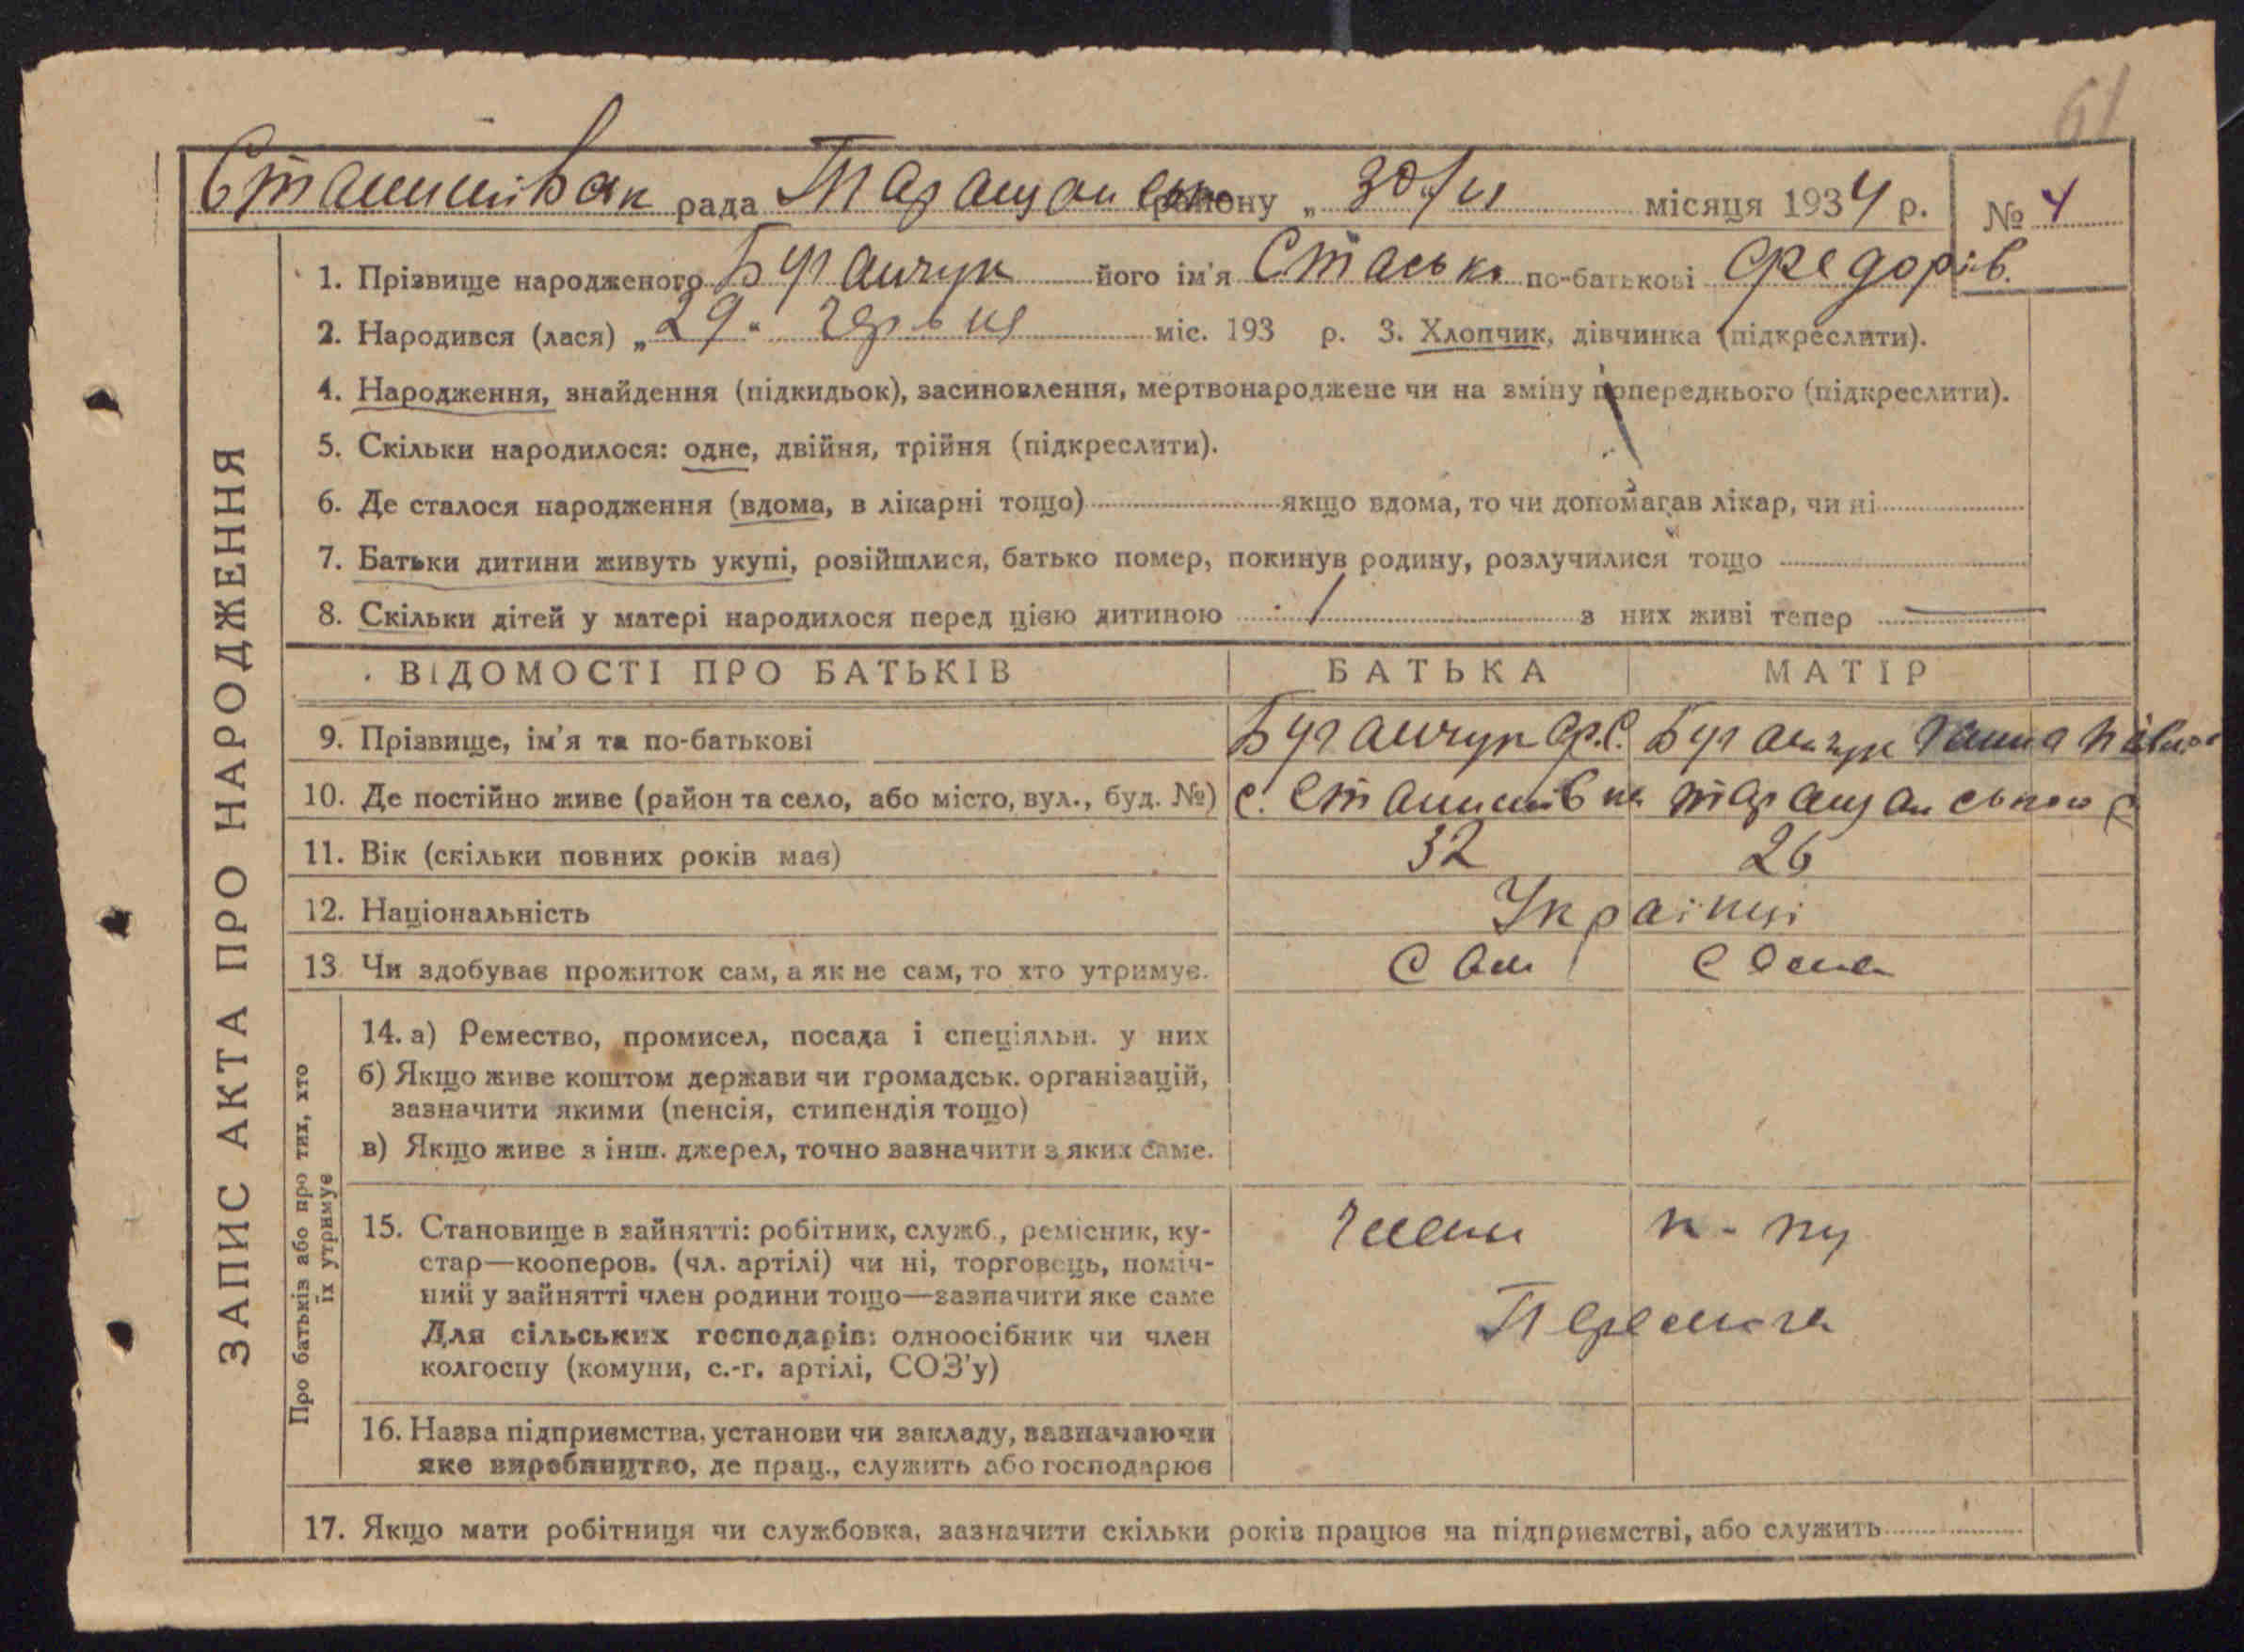 61
Станишівськ рада Таращанськ району „ 30/VI місяця 1934 р. № 4
ЗАПИС АКТА ПРО НАРОДЖЕННЯ
1. Прізвище народженого його ім'я Стасько по-батькові Федорів.
2. Народився (лася) „29“ червня міс. 193 р. 3. Хлопчик, дівчинка (підкреслити).
4. Народження, знайдення (підкидьок), засиновлення, мертвонароджене чи на зміну попереднього (підкреслити).
5. Скільки народилося: одне, двійня, трійня (підкреслити).
6. Де сталося народження (вдома, в лікарні тощо) якщо вдома, то чи допомагав лікар, чи ні
7. Батьки дитини живуть укупі, розійшлися, батько помер, покинув родину, розлучилися тощо
8. Скільки дітей у матері народилося перед цією дитиною 1 з них живі тепер —
ВІДОМОСТІ ПРО БАТЬКІВ БАТЬКА МАТІР
9. Прізвище, ім'я та по-батькові Ф.С. Ганна
10. Де постійно живе (район та село, або місто, вул., буд. №) с. Станишівка Таращанського р
11. Вік (скільки повних років має) 32 26
12. Національність Українці
13. Чи здобуває прожиток сам, а як не сам, то хто утримує. Сам Сама
Про батьків або про тих, хто
їх утримує
14. а) Ремество, промисел, посада і спеціяльн. у них
б) Якщо живе коштом держави чи громадськ. організацій,
зазначити якими (пенсія, стипендія тощо)
в) Якщо живе з інш. джерел, точно зазначити з яких саме.
15. Становище в зайнятті: робітник, служб., ремісник, ку-
стар—кооперов. (чл. артілі) чи ні, торговець, поміч-
ний у зайнятті член родини тощо—зазначити яке саме
Для сільських господарів: одноосібник чи член
колгоспу (комуни, с.-г. артілі, СОЗ'у)
члени к-пу
Перемога
16. Назва підприємства, установи чи закладу, зазначаючи
яке виробництво, де прац., служить або господарює
17. Якщо мати робітниця чи службовка, зазначити скільки років працює на підприємстві, або служить